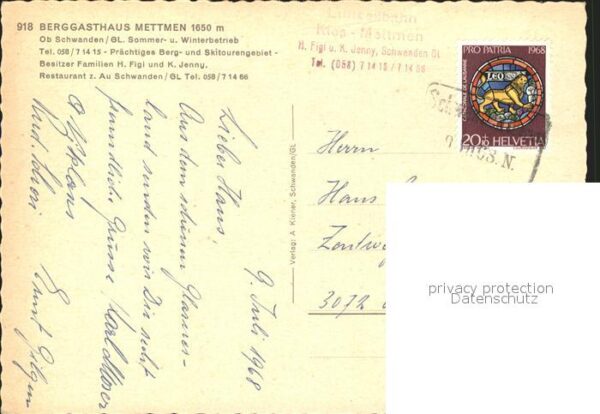 918 BERGGASTHAUS METTMEN 1650 m
Ob Schwanden/GL. Sommer- u. Winterbetrieb
Tel. 058/7 14 15 - Prächtiges Berg- und Skitourengebiet -
Besitzer Familien H. Figi und K. Jenny,
Restaurant z. Au Schwanden/GL Tel. 058/7 14 66
Mettmen
H. Figi u. K. Jenny, Schwanden GL
Tel. (058) 7 14 15 / 7 14 66
PRO PATRIA 1968
CATHÉDRALE DE LAUSANNE
LEO
20+10 HELVETIA
9. Juli 1968
Lieber Hans,
Aus dem schönen Glarner-
land senden wir Dir recht
freundliche Grüsse
Verlag: A. Kiener, Schwanden/GL
Herrn
Hans
3072
privacy protection
Datenschutz